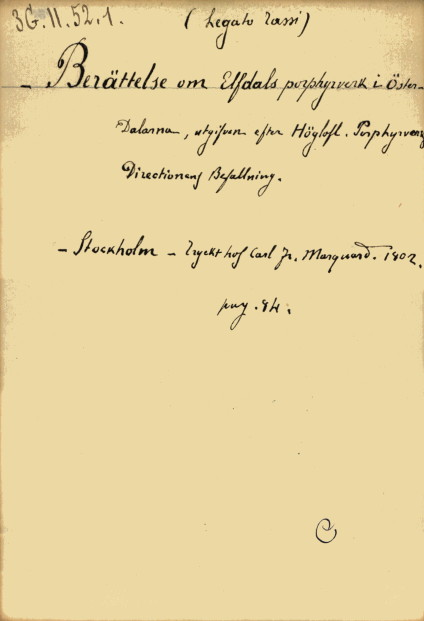 3G.11.52.1. (Legato Tassi)
- Berättelse om Elfdals porphyrverk i Öster-
Dalarna, utgifven efter Höglofl. Porphyrverks
Directionens Befallning.
- Stockholm - Tryckt hos Carl Fr. Marquard. 1802.
pag. 84.
C